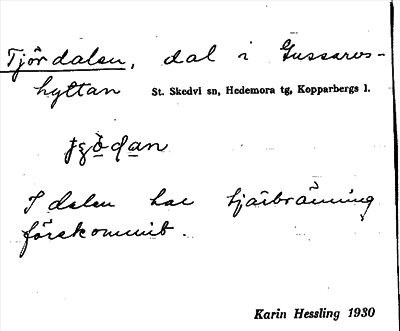 Tjärdalen, dal i Gussarvs-
hyttan St. Skedvi sn, Hedemora tg, Kopparbergs l.
I dalen har tjärbränning
förekommit.
Karin Hessling 1930